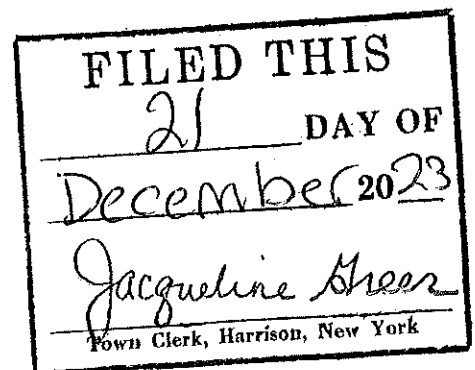 FILED THIS
21 DAY OF
December 2023
Jacqueline Greer
Town Clerk, Harrison, New York